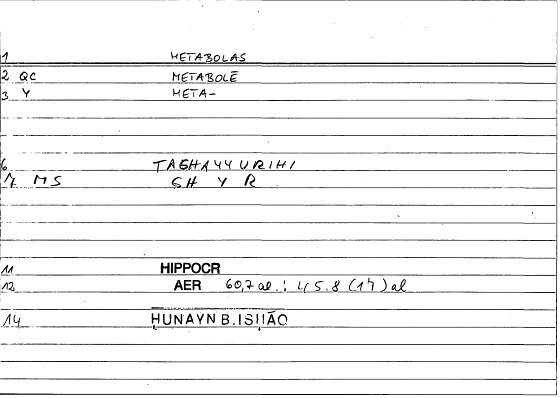 1 METABOLAS
2 QC METABOLĒ
3 Y META-
6 TAGHAYYURIHI
7 MS GH Y R
11 HIPPOCR
12 AER 60,7 al.: 45.8 (17) al
14 ḤUNAYN B. ISḤĀQ